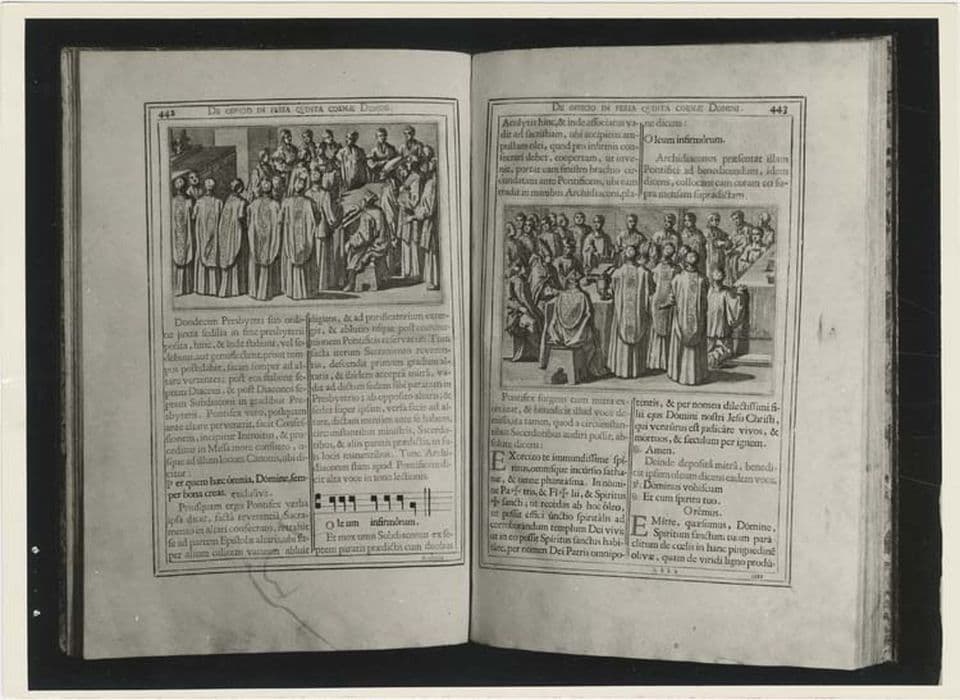 442
DE OFFICIO IN FERIA QVINTA COENÆ DOMINI.
Duodecim Presbyteri suo ordi-
ne juxta sedilia in fine presbyterii
posita, hinc, & inde stabunt, vel se-
debunt, aut genuflectent, prout tem-
pus postulabit, faciem semper ad al-
tare vertentes; post eos stabunt se-
ptem Diaconi, & post Diaconos se-
ptem Subdiaconi in gradibus Pre-
sbyterii. Pontifex vero, postquam
ante altare pervenerit, facit Confes-
sionem, incipitur Introitus, & pro-
ceditur in Missa more consueto, u-
sque ad illum locum Canonis, ubi di-
citur:
Per quem hæc ómnia, Dómine, sem-
per bona creas. exclusive.
Priusquam ergo Pontifex verba
ipsa dicat, facta reverentia Sacra-
mento in altari consecrato, retrahit
se ad partem Epistolæ altaris, ubi su-
per alium calicem vacuum abluit
digitos, & ad purificatorium exter-
git, & ablutio usque post commu-
nionem Pontificis reservatur. Tum
facta iterum Sacramento reveren-
tia, descendit primum gradum al-
taris, & ibidem accepta mitra, va-
dit ad dictum sedem sibi paratam in
Presbyterio; ab opposito altaris; &
sedet super ipsum, versa facie ad al-
tare, dictam mensam ante se habens,
circumstantibus ministris, Sacerdo-
tibus, & aliis paratis prædictis, in su-
is locis ministrantibus. Tunc Archi-
diaconus stans apud Pontificem di-
cit alta voce in tono lectionis.
O le um infirmórum.
Et mox unus Subdiaconus ex se-
ptem paratis prædictis cum duobus
DE OFFICIO IN FERIA QVINTA COENÆ DOMINI.
443
Acolytis hinc, & inde associatus va-
dit ad sacristiam, ubi accipiens am-
pullam olei, quod pro infirmis con-
secrari debet, coopertam, ut inve-
nit, portat eam sinistro brachio cir-
cumdatam ante Pontificem, ubi eam
tradit in manibus Archidiaconi, pla-
ne dicens:
Oleum infirmórum.
Archidiaconus præsentat illam
Pontifici ad benedicendum, idem
dicens, collocans eam coram eo su-
pra mensam supradictam.
Pontifex surgens cum mitra ex-
orcizat, & benedicit illud voce de-
missa tamen, quod a circumstan-
tibus Sacerdotibus audiri possit, ab-
solute dicens:
EXorcizo te immundissime spi-
ritus, omnisque incúrsio sátha-
næ, & omne phantásma. In nómi-
ne Pa✠tris, & Fí✠lii, & Spíritus
✠ sancti; ut recédas ab hoc óleo,
ut possit éffici únctio spirituális ad
corroborándum templum Dei vivi;
ut in eo possit Spíritus sanctus habi-
táre, per nomen Dei Patris omnipo-
téntis, & per nomen dilectíssimi fí-
lii ejus Dómini nostri Jesu Christi,
qui ventúrus est judicáre vivos, &
mórtuos, & sæculum per ignem.
℟. Amen.
Deinde deposita mitra, benedi-
cit ipsum oleum dicens eadem voce,
℣. Dóminus vobíscum
℟. Et cum spíritu tuo.
Orémus.
EMítte, quæsumus, Dómine,
Spíritum sanctum tuum pará-
clitum de cœlis in hanc pinguédinē
olívæ, quam de víridi ligno prodú-